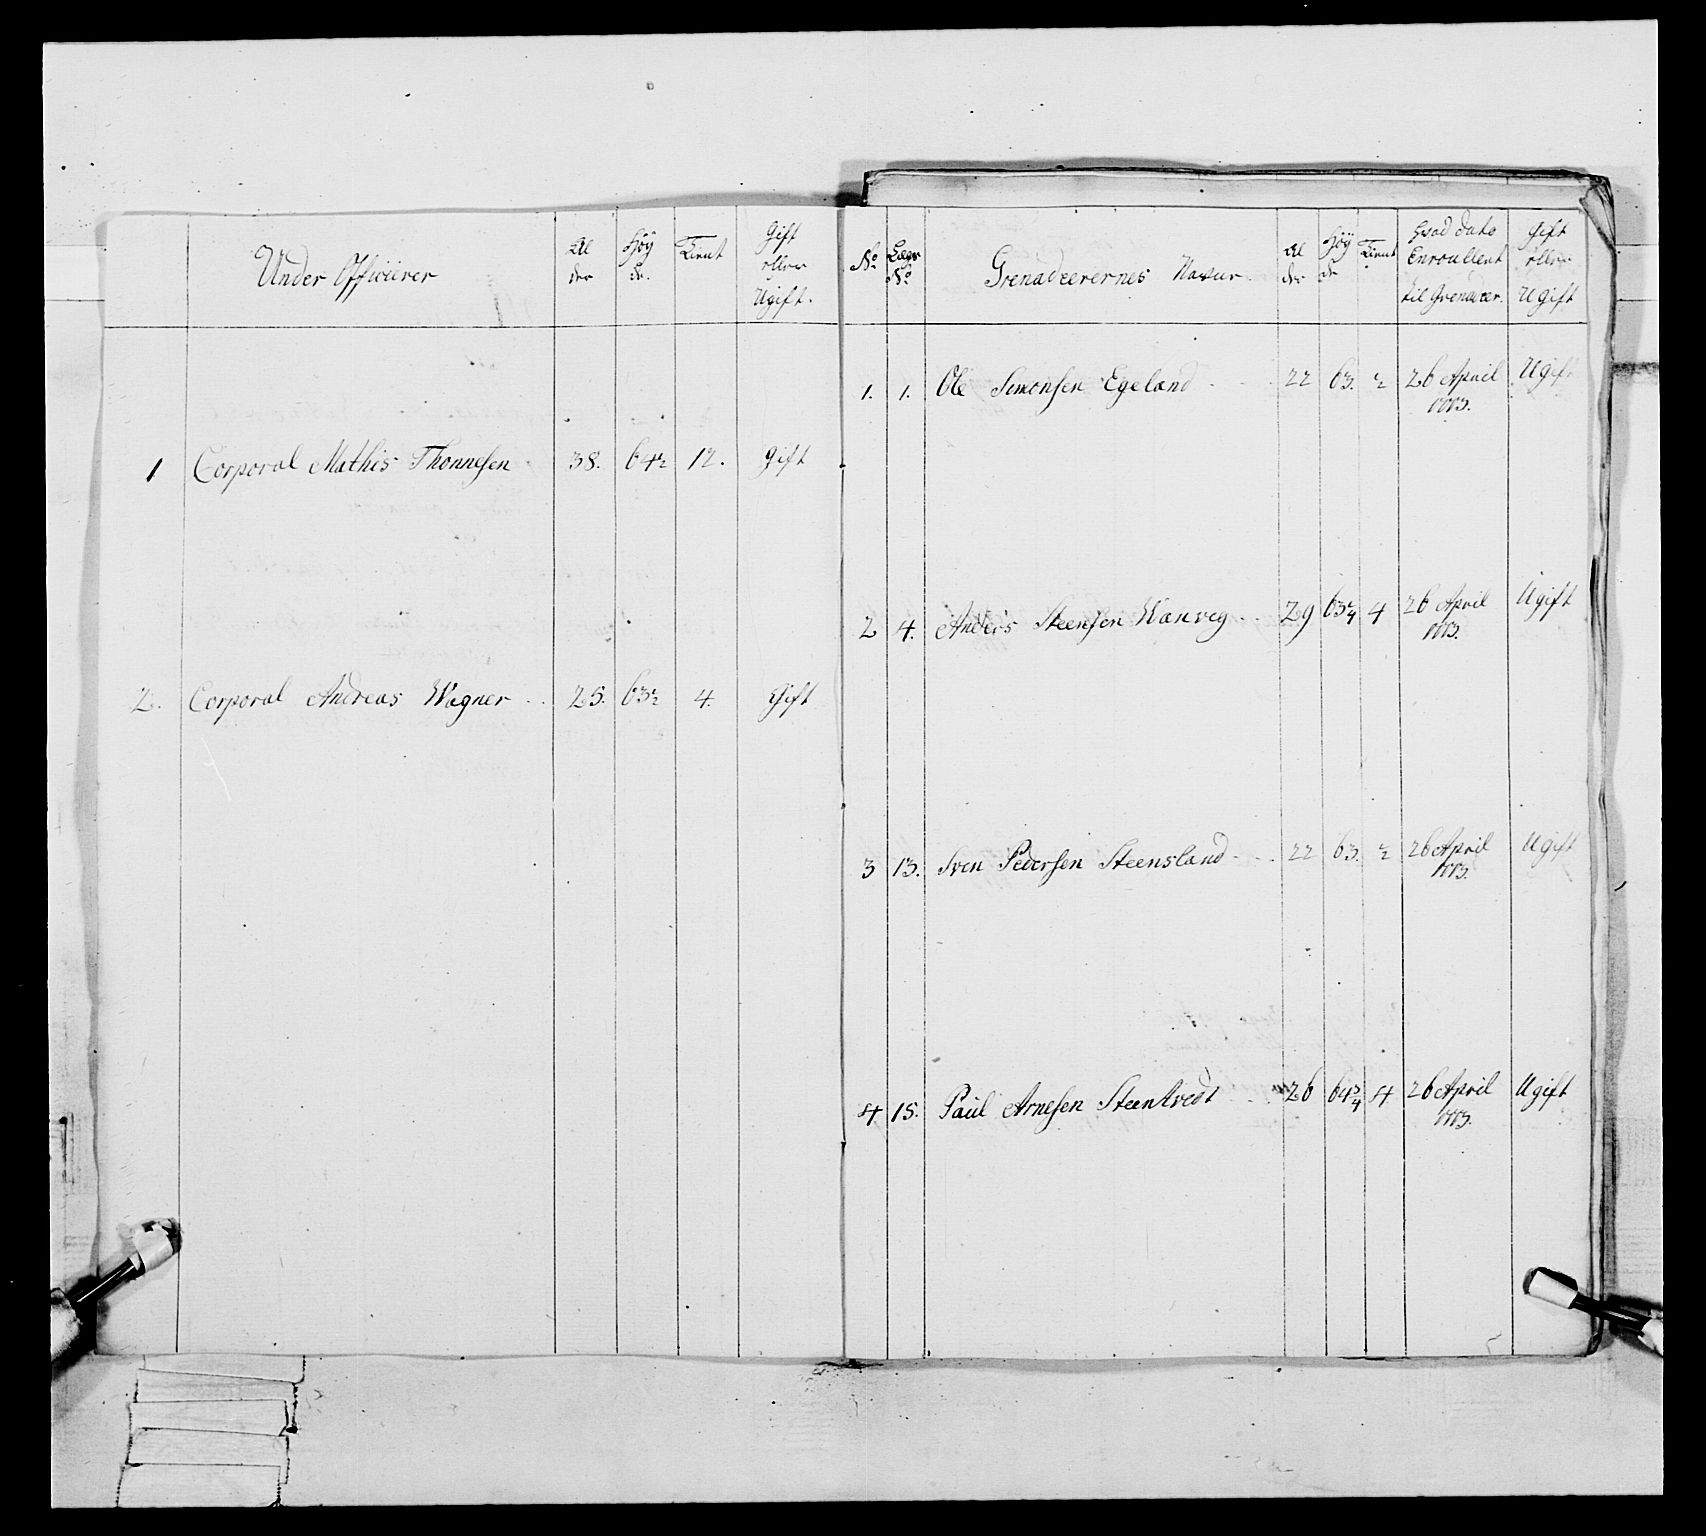 Under Officierer
Al
der
Høÿ
de.
Tient
Gift
eller
Ugift.
1 Corporal Mathis Thonnesen 38. 64½ 12. gift
2. Corporal Andreas Wagner 25. 63½ 4. Gift
No
Lægs
No
Grenadeerernes Navne
Al
der
Høÿ
de
Tient
Hvad dato
Enroullent
til Grenadeer.
Gift
eller
Ugift
1. 1. Ole Simonsen Egeland 22 63. ½ 26 April Ugift
1803.
2 4. Anders Steensen Wanveg 29 63¾ 4 26 April Ugift
1803.
3 13. Sven Pedersen Steensland 22 63. ½ 26 April Ugift
1803.
4 15. Paul Arnesen Steentvedt 26 64¾ 4 26 April Ugift
1803.